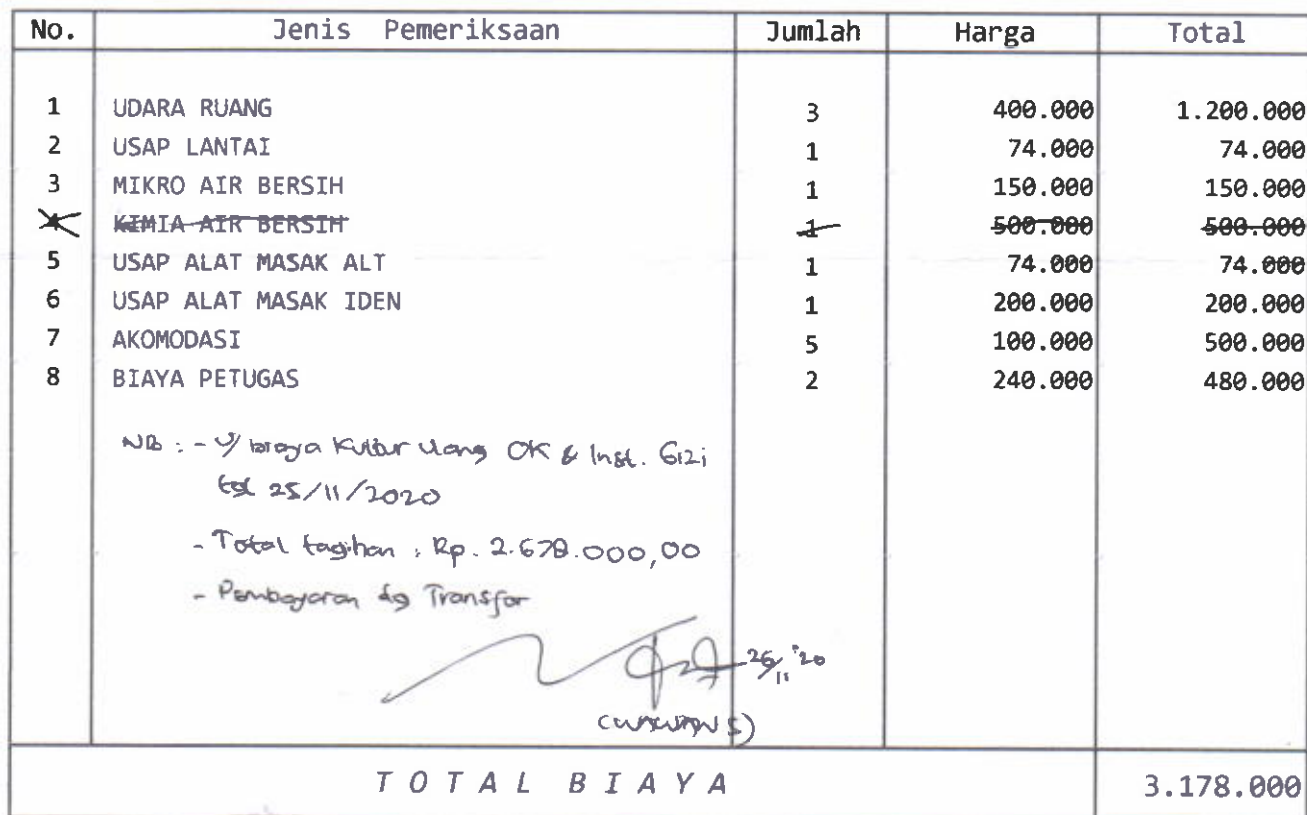 No. Jenis Pemeriksaan Jumlah Harga Total
1 UDARA RUANG 3 400.000 1.200.000
2 USAP LANTAI 1 74.000 74.000
3 MIKRO AIR BERSIH 1 150.000 150.000
4 KIMIA AIR BERSIH 1 500.000 500.000
5 USAP ALAT MASAK ALT 1 74.000 74.000
6 USAP ALAT MASAK IDEN 1 200.000 200.000
7 AKOMODASI 5 100.000 500.000
8 BIAYA PETUGAS 2 240.000 480.000
NB : - U/ biaya Kultur Uang OK & Inst. Gizi
tgl 25/11/2020
- Total tagihan : Rp. 2.678.000,00
- Pembayaran dg Transfer
26/11 '20
(WAWAN S)
TOTAL BIAYA 3.178.000